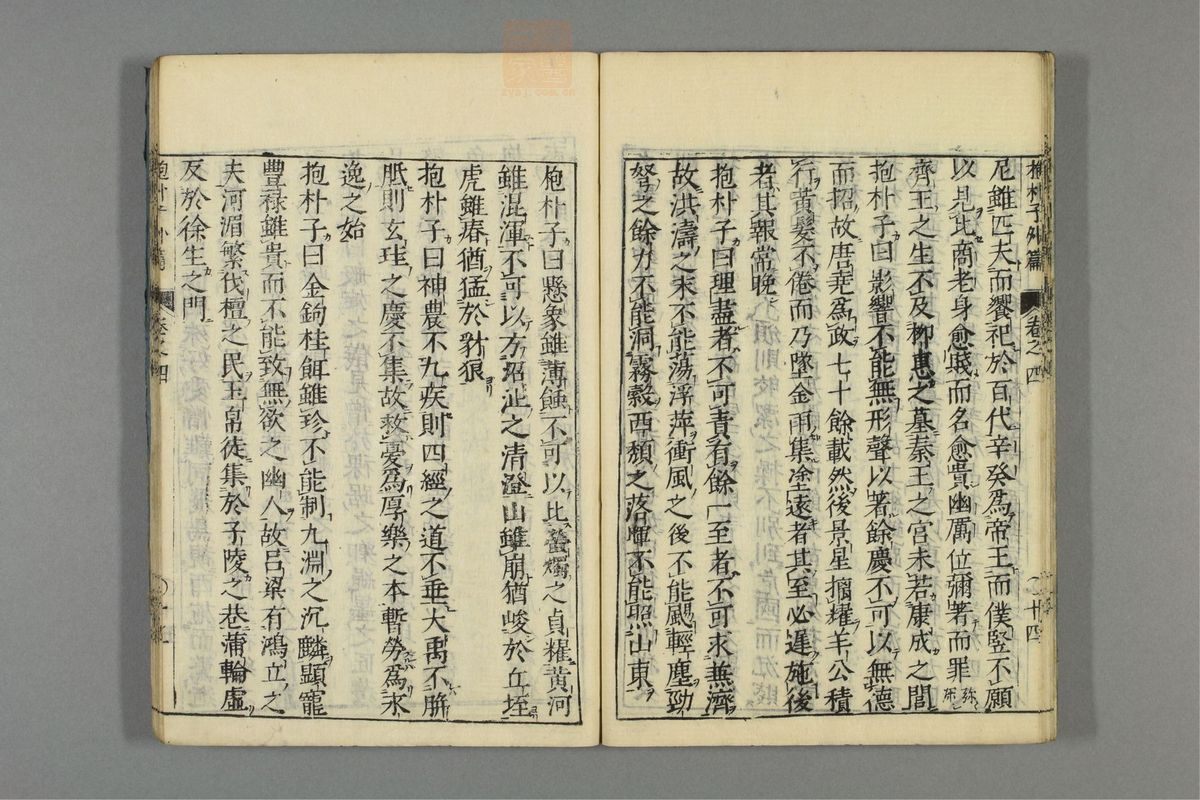 抱朴子外篇 卷之四 廿四
尼雖匹夫而饗祀於百代辛癸爲帝王而僕竪不願
以見比商老身愈賤而名愈貴幽厲位彌著而罪弥
齊王之生不及柳惠之墓秦王之宮未若康成之閭
抱朴子曰影響不能無形聲以著餘慶不可以無德
而招故唐堯爲政七十餘載然後景星摛耀羊公積
行黃髮不倦而乃墜金雨集塗遠者其至必遲施後
者其報常晚
抱朴子曰理盡者不可責有餘一至者不可求兼濟
故洪濤之末不能蕩浮萍衝風之後不能颺輕塵勁
弩之餘力不能洞霧縠西頽之落暉不能照山東
抱朴子曰懸象雖薄蝕不可以比螢燭之貞耀黃河
雖混渾不可以方沼沚之清澄山雖崩猶峻於丘垤
虎雖瘠猶猛於豺狼
抱朴子曰神農不九疾則四經之道不垂大禹不胼
胝則玄珪之慶不集故救憂爲厚樂之本暫勞爲永
逸之始
抱朴子曰金鉤桂餌雖珍不能制九淵之沉鱗顯寵
豐祿雖貴而不能致無欲之幽人故呂梁有鴻立之
夫河湄繁伐檀之民玉帛徒集於子陵之巷蒲輪虛
反於徐生之門
抱朴子外篇 卷之四
zysj.com.cn